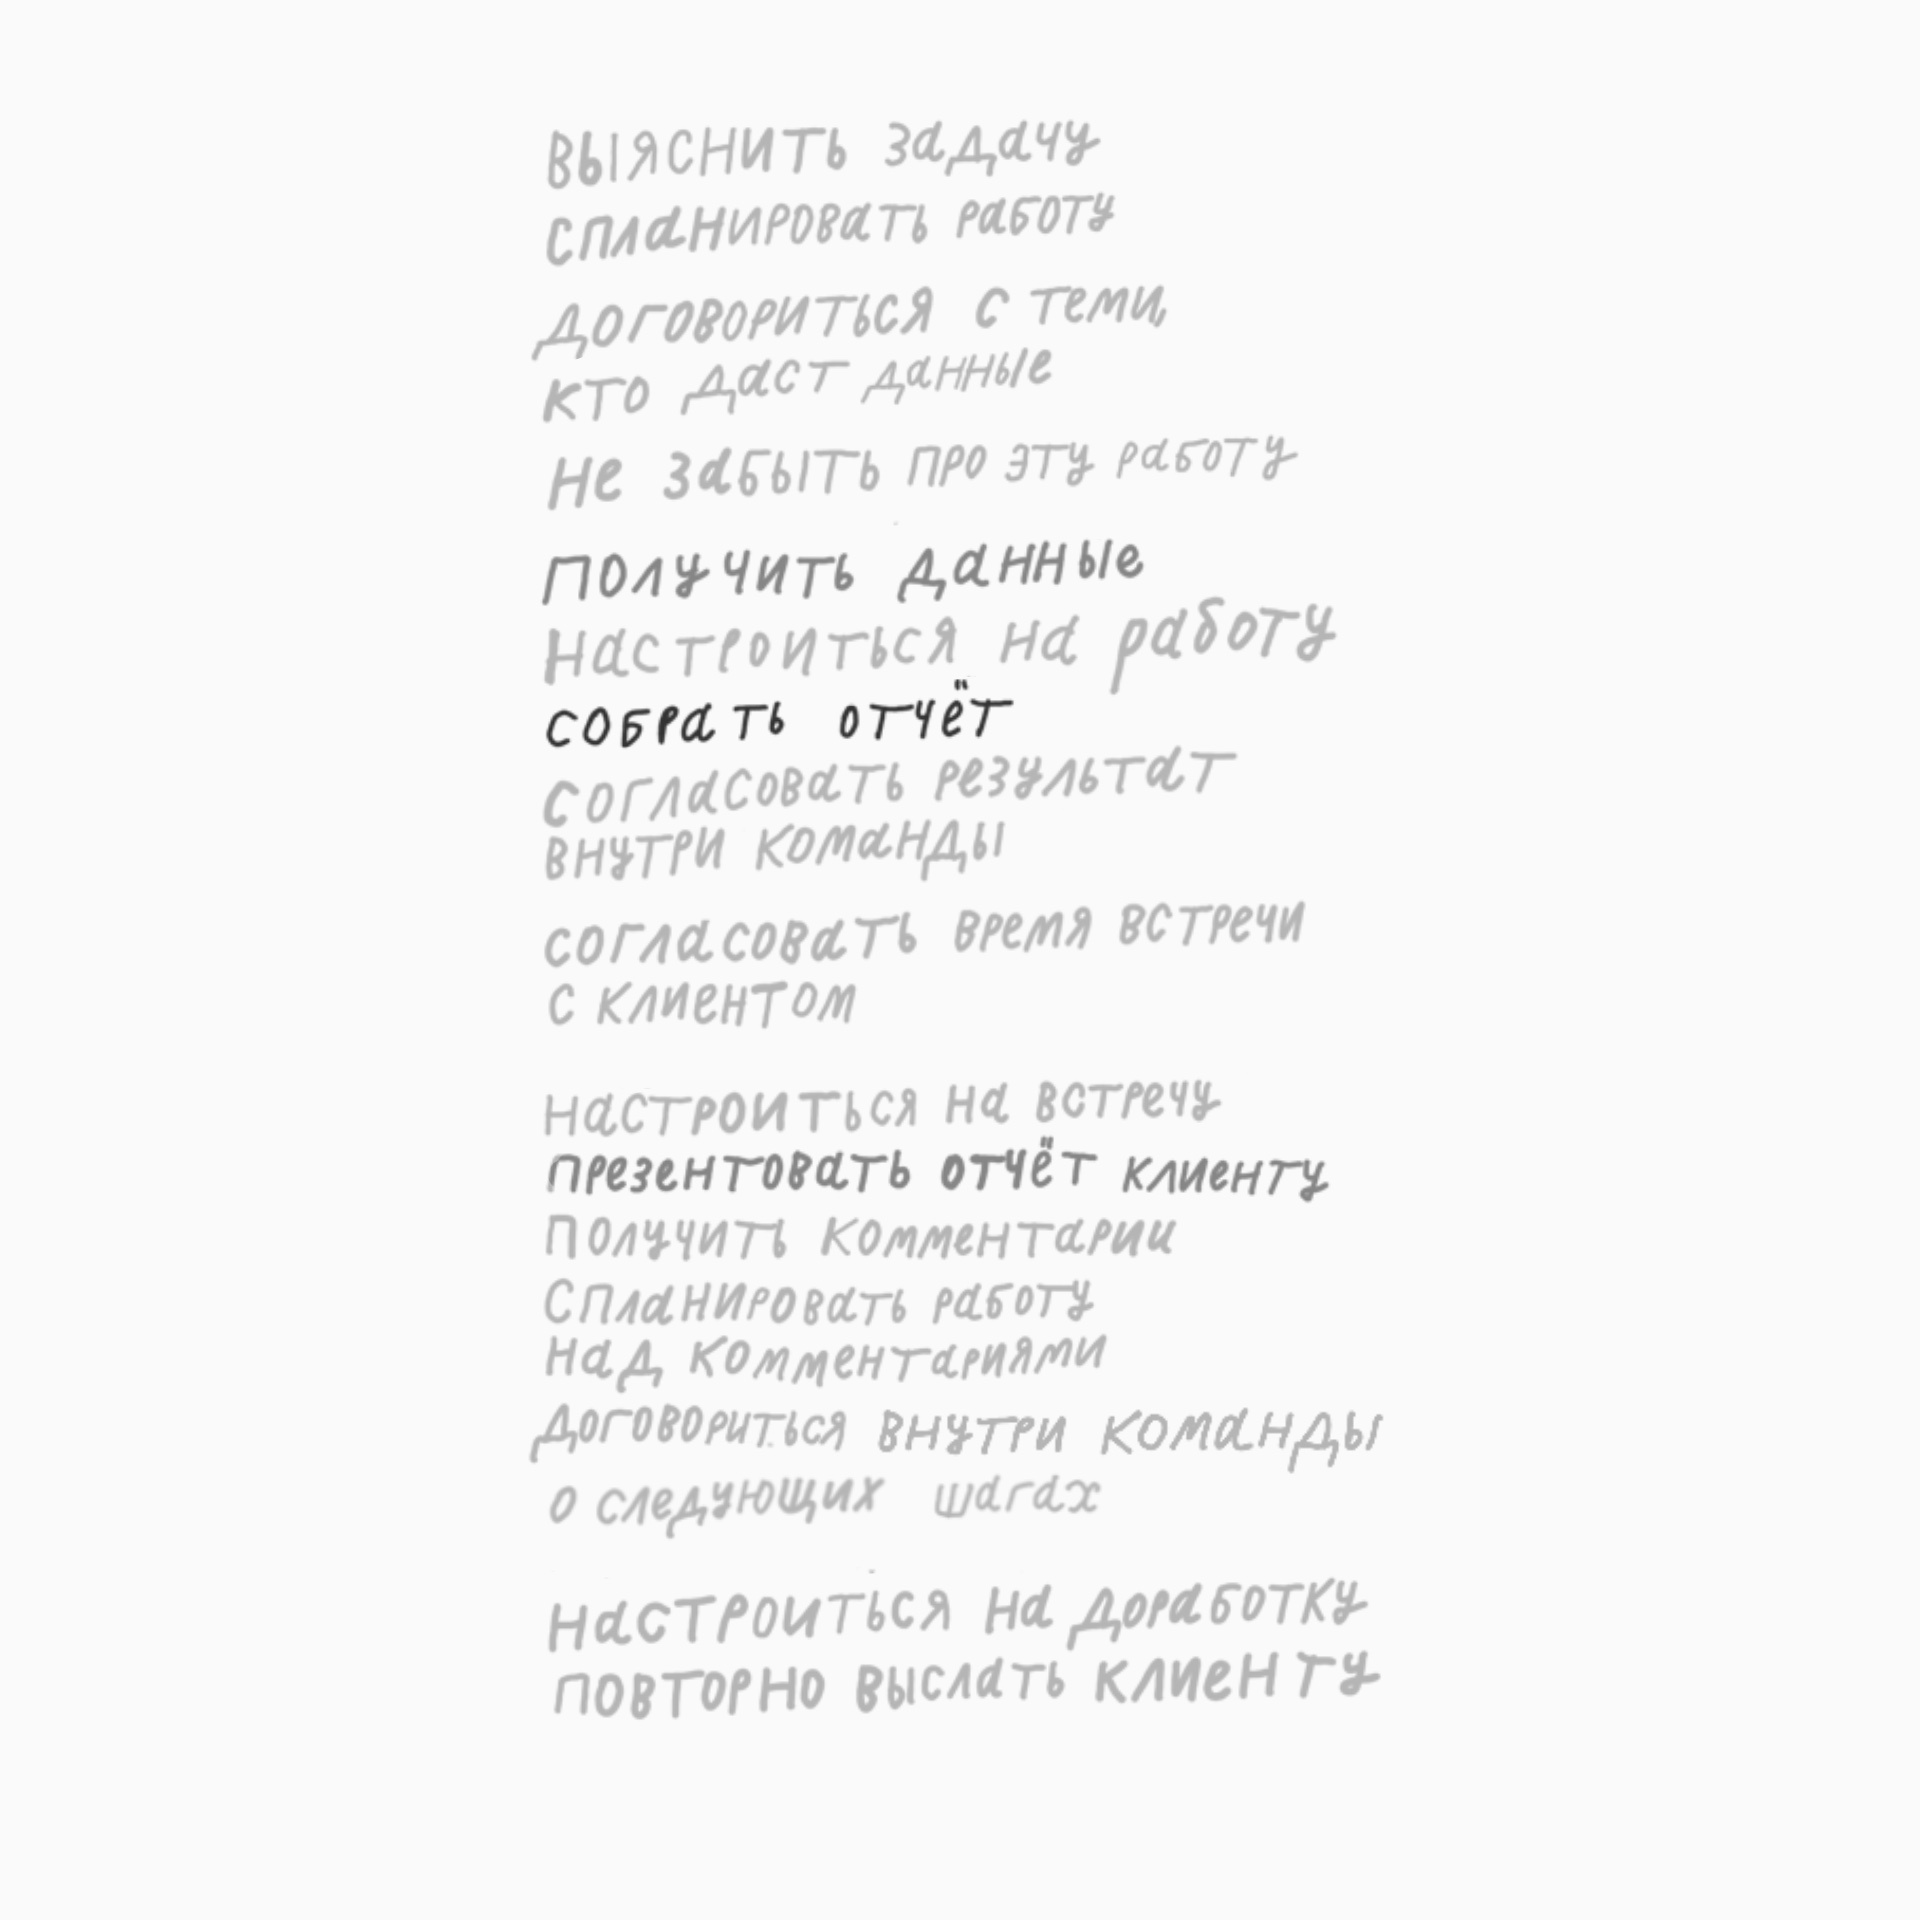 выяснить задачу
спланировать работу
договориться с теми,
кто даст данные
не забыть про эту работу
получить данные
настроиться на работу
собрать отчёт
согласовать результат
внутри команды
согласовать время встречи
с клиентом
настроиться на встречу
презентовать отчёт клиенту
Получить комментарии
Спланировать работу
над комментариями
договориться внутри команды
о следующих шагах
настроиться на доработку
повторно выслать клиенту